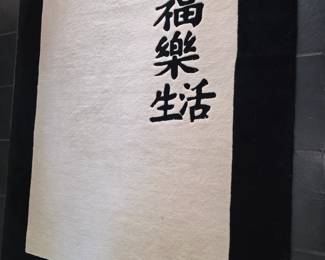 福
樂
生活